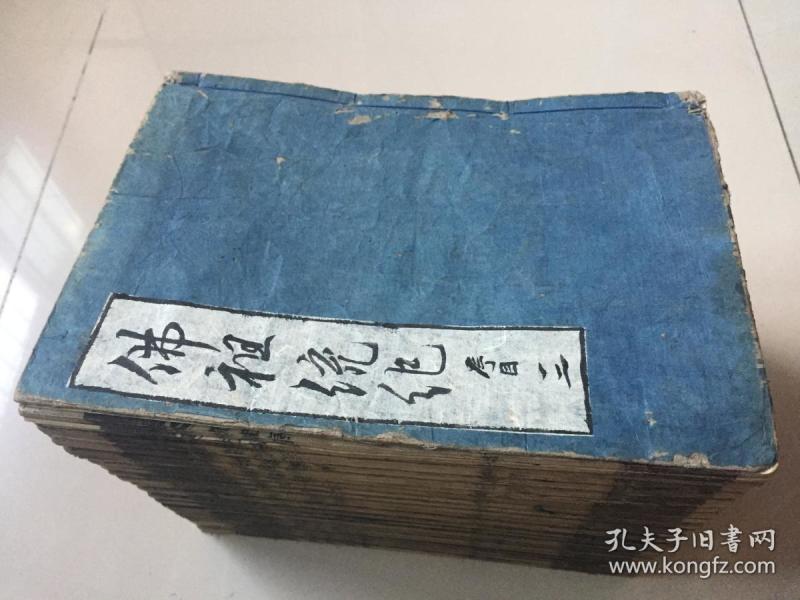 佛祖統紀 卷首 二
孔夫子旧書网
www.kongfz.com